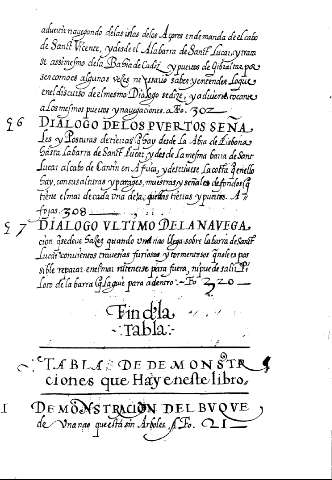 adviento yendo de las islas de los Açores en demanda de el cabo
de Sanct Vicente, y desde el A la barra de Sanct Lucar, y trata
se assimesmo de la Bahia de Cadiz y puertos de Gibraltar, por
ser cosas que algunas vezes es necessario saber y entender, lo que
en el discurso de el mesmo Dialogo se dize, y advierte tocante
A los mesmos puertos y navegaciones. A. Fo. 302
96 DIALOGO DE LOS PVERTOS SEÑA
Les y Posturas de tierra que hay desde la de Lisbona
hasta la barra de Sanct Lucar, y des de la mesma barra de Sanct
Lucar al cabo de Cantin en Africa, y descrivese la costa que en ello
hay, con sus alturas y parages, muestras y señales de fondos que
tiene el mar de cada una de las dichas tierras y puertos. A
fojas. 308
97 DIALOGO VLTIMO DE LA NAVEGA
cion que deve hazer quando una nao llega sobre la barra de Sanct
Lucar con vientos traversias furiosos y tormentosos que no le es po
sible reparar en el mar ni tenerse para fuera, ni puede salir Pi
loto de la barra que la guie para adentro. Fo 320
Fin de la
Tabla.
TABLA DE DEMONSTR
ciones que Hay en este libro.
1 DEMONSTRACION DEL BVQVE
de Una nao que está sin Arboles. A Fo. 21